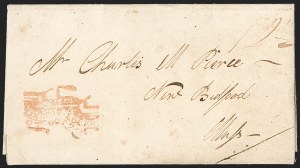 12½
Mr Charles M Pierce
New Bedford
Mass